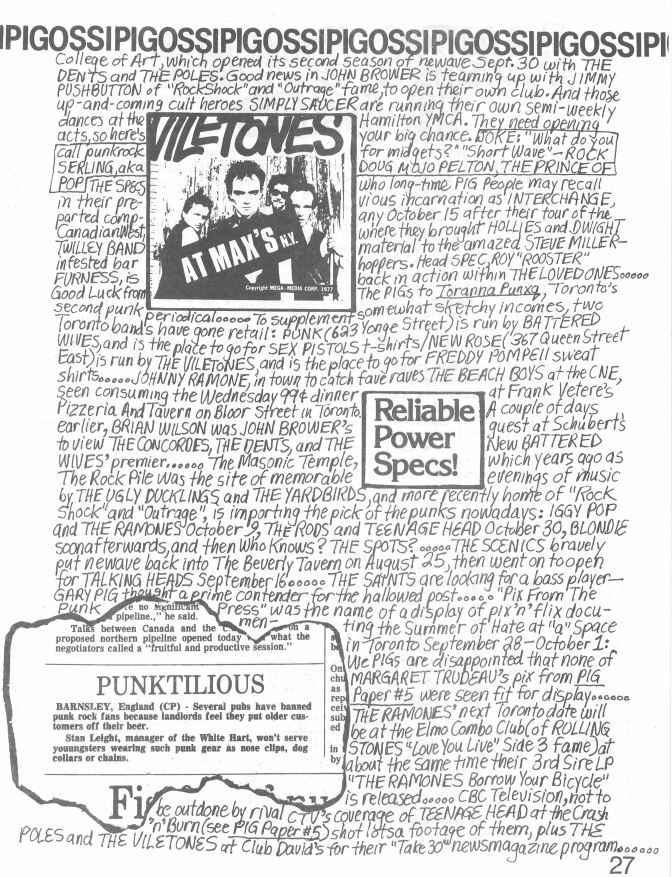 IPIGOSSIPIGOSSIPIGOSSIPIGOSSIPIGOSSIPIGOSSIPI
College of Art, which opened its second season of newave Sept. 30 with THE
DENTS and THE POLES. Good news in JOHN BROWER is teaming up with JIMMY
PUSHBUTTON of "RockShock" and "Outrage" fame, to open their own club. And those
up-and-coming cult heroes SIMPLY SAUCER are running their own semi-weekly
dances at the Hamilton YMCA. They need opening
acts, so here's your big chance. JOKE: "What do you
call punkrock for midgets?" "Short Wave" - ROCK
SERLING, aka DOUG MOJO PELTON, THE PRINCE OF
POP THE SPECS who long-time PIG People may recall
in their pre- vious incarnation as INTERCHANGE,
parted comp- any October 15 after their tour of the
Canadian West, where they brought HOLLIES and DWIGHT
TWILLEY BAND material to the amazed STEVE MILLER-
infested bar hoppers. Head SPEC, ROY "ROOSTER"
FURNESS, is back in action within THE LOVED ONES.....
Good Luck from The PIGs to Toranna Punxq, Toronto's
second punk periodical..... To supplement somewhat sketchy incomes, two
VILETONES
AT MAX'S N.Y.
Copyright MEGA-MEDIA CORP. 1977
Toronto bands have gone retail: PUNK (623 Yonge Street) is run by BATTERED
WIVES, and is the place to go for SEX PISTOLS t-shirts / NEW ROSE (367 Queen Street
East) is run by THE VILETONES, and is the place to go for FREDDY POMPEII sweat
shirts..... JOHNNY RAMONE, in town to catch fave raves THE BEACH BOYS at the CNE,
seen consuming the Wednesday 99¢ dinner at Frank Vetere's
Pizzeria And Tavern on Bloor Street in Toronto. A couple of days
earlier, BRIAN WILSON was JOHN BROWER's guest at Schubert's
to view THE CONCORDES, THE DENTS, and THE New BATTERED
WIVES' premier...... The Masonic Temple, which years ago as
The Rock Pile was the site of memorable evenings of music
Reliable
Power
Specs!
by THE UGLY DUCKLINGS and THE YARDBIRDS, and more recently home of "Rock
Shock" and "Outrage", is importing the pick of the punks nowadays: IGGY POP
and THE RAMONES October 9, THE RODS and TEENAGE HEAD October 30, BLONDIE
soon afterwards, and then Who Knows? THE SPOTS?..... THE SCENICS bravely
put newave back into The Beverly Tavern on August 25, then went on to open
for TALKING HEADS September 16..... THE SAYNTS are looking for a bass player—
GARY PIG thought a prime contender for the hallowed post..... "Pix From The
Punk Press" was the name of a display of pix 'n' flix docu-
men- ting the Summer of Hate at "a" Space
in Toronto September 28 - October 1:
We PIGs are disappointed that none of
MARGARET TRUDEAU's pix from PIG
Paper #5 were seen fit for display......
THE RAMONES' next Toronto date will
be at the Elmo Combo Club (of ROLLING
STONES "Love You Live" Side 3 fame) at
about the same time their 3rd Sire LP
"THE RAMONES Borrow Your Bicycle"
is released..... CBC Television, not to
re no significant
pipeline.," he said.
Talks between Canada and the on a
proposed northern pipeline opened today what the
negotiators called a "fruitful and productive session."
PUNKTILIOUS
BARNSLEY, England (CP) - Several pubs have banned
punk rock fans because landlords feel they put older cus-
tomers off their beer.
Stan Leight, manager of the White Hart, won't serve
youngsters wearing such punk gear as nose clips, dog
collars or chains.
be outdone by rival CTV's coverage of TEENAGE HEAD at the Crash
'n' Burn (see PIG Paper #5) shot lotsa footage of them, plus THE
POLES and THE VILETONES at Club David's for their "Take 30" newsmagazine program......
27